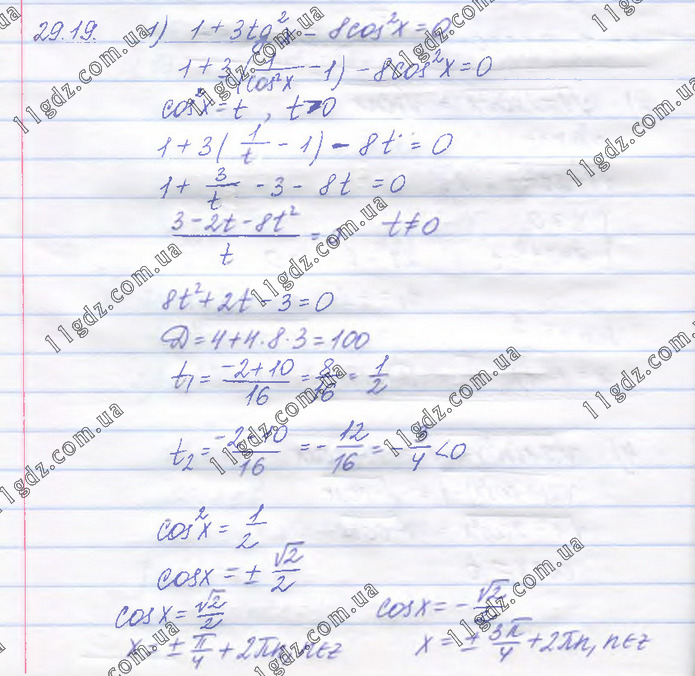 29.19. 1) 1 + 3tg²x - 8cos²x = 0
1 + 3(1/cos²x - 1) - 8cos²x = 0
cos²x = t, t > 0
1 + 3(1/t - 1) - 8t = 0
1 + 3/t - 3 - 8t = 0
(3 - 2t - 8t²)/t = 0 t ≠ 0
8t² + 2t - 3 = 0
D = 4 + 4·8·3 = 100
t₁ = (-2 + 10)/16 = 8/16 = 1/2
t₂ = (-2 - 10)/16 = -12/16 = -3/4 < 0
cos²x = 1/2
cosx = ± √2/2
cosx = √2/2 cosx = -√2/2
x = ± π/4 + 2πn, n∈z x = ± 3π/4 + 2πn, n∈z
11gdz.com.ua
11gdz.com.ua
11gdz.com.ua
11gdz.com.ua
11gdz.com.ua
11gdz.com.ua
11gdz.com.ua
11gdz.com.ua
11gdz.com.ua
11gdz.com.ua
11gdz.com.ua
11gdz.com.ua